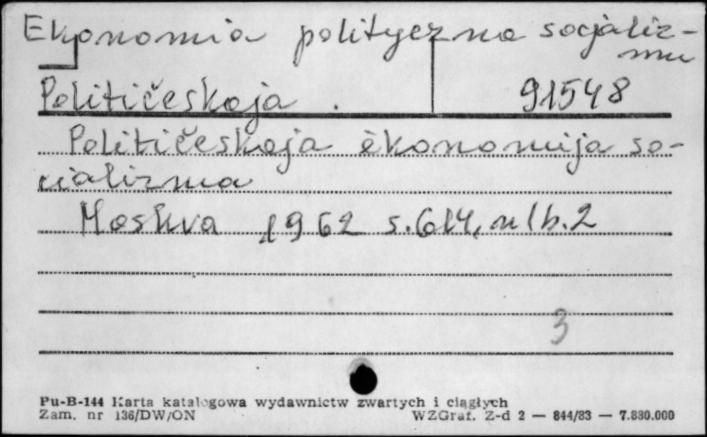 Ekonomia polityczna socjaliz-
mu
Političeskaja . 91548
Političeskaja èkonomija so-
cializma
Moskva 1962 s.614, nlb.2
3
Pu-B-144 Karta katalogowa wydawnictw zwartych i ciągłych
Zam. nr 136/DW/ON WZGraf. Z-d 2 — 844/83 — 7.830.000